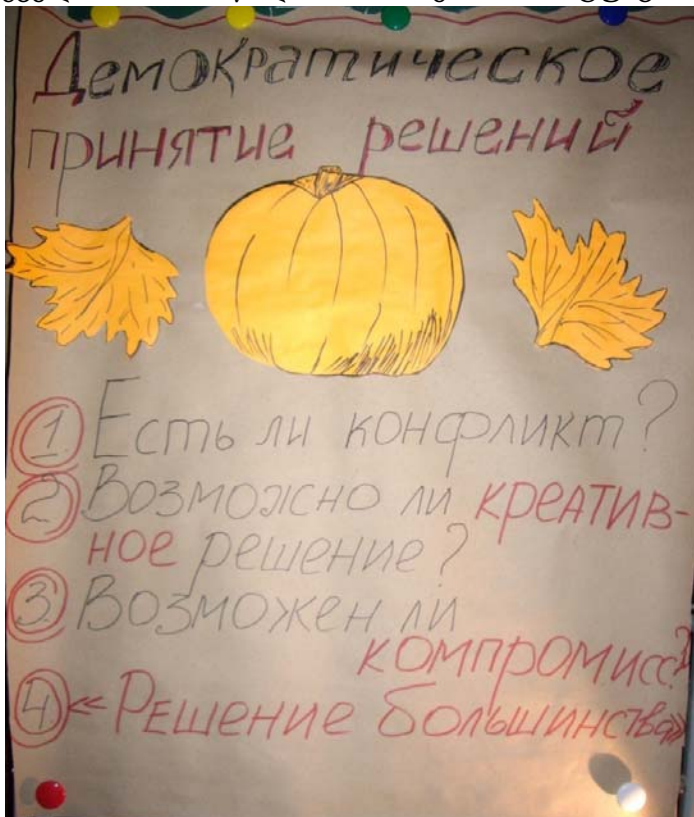 Демократическое
принятие решений
1. Есть ли конфликт?
2. Возможно ли креатив-
ное решение?
3. Возможен ли
компромисс?
4. «Решение большинства»